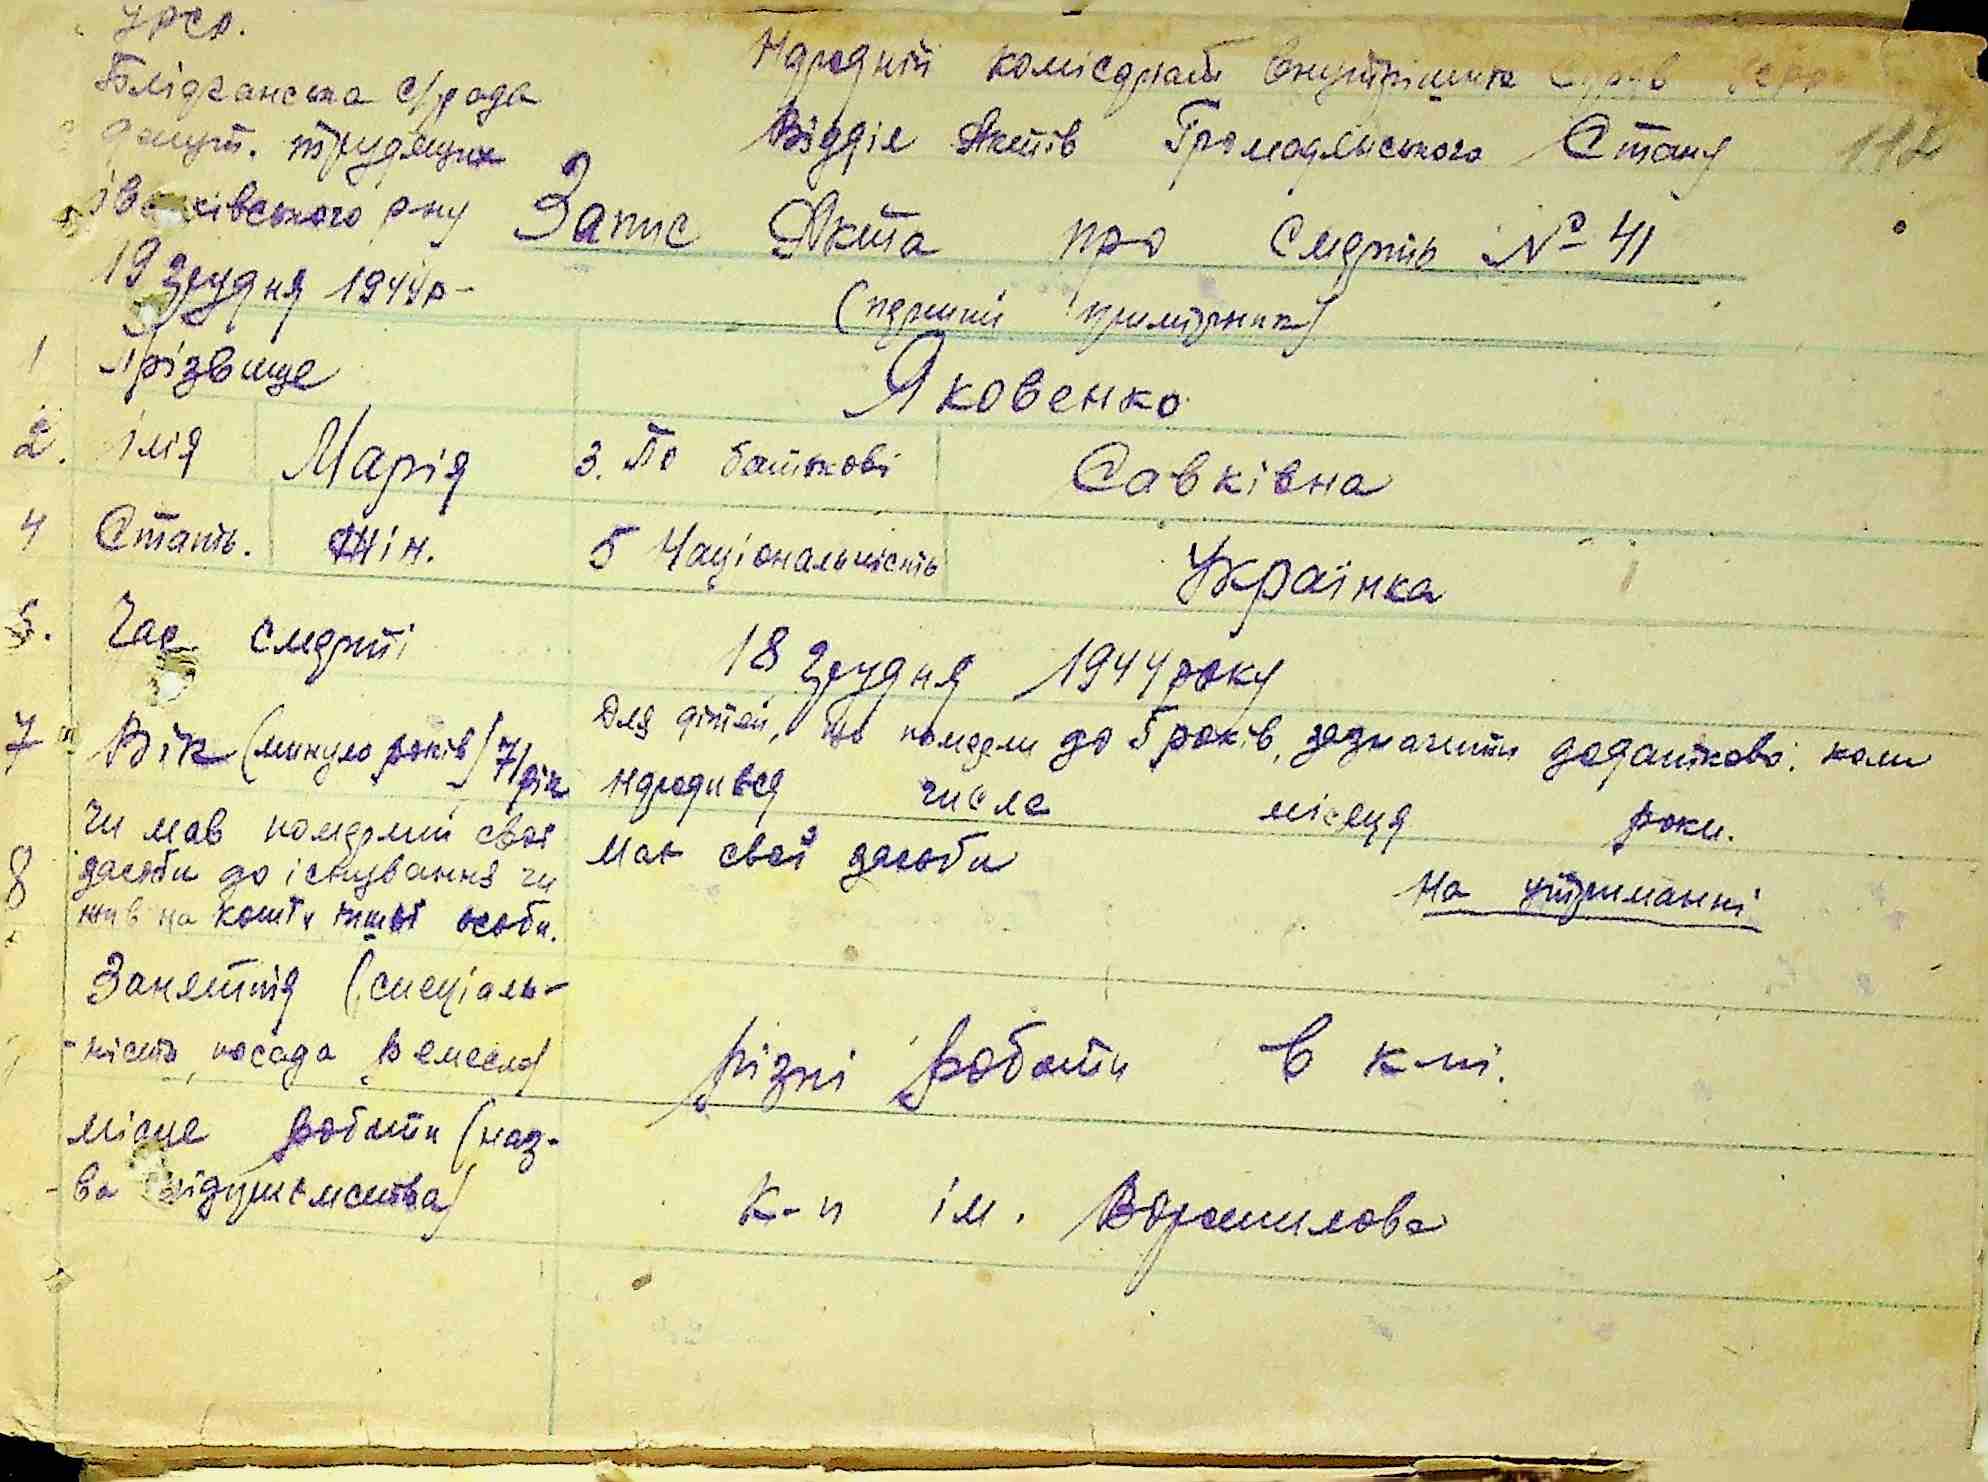 УРСР.
Блідчанська с/рада
депут. трудящих
Іванківського р-ну
19 грудня 1944 р-
Народній комісаріат Внутрішніх Справ УСРР
Відділ Актів Громадянського Стану
Запис Акта про Смерть № 41
(перший примірник)
1 Прізвище Яковенко
2. імя Марія 3. По батькові Савківна
4 Стать. жін. 5 Національність Українка
Час смерті 18 грудня 1944 року
7 Вік (минуло років) 71 рік Для дітей, що померли до 5 років, зазначити додатково: коли
народився числа місяця роки.
8 Чи мав померлий свої
засоби до існування чи
жив на кошти іншої особи.
Має свої засоби на утриманні
Заняття (спеціаль-
-ність, посада ремесло)
різні роботи в к-пі.
місце роботи (наз-
ва підприємства)
К-п ім. Ворошилова